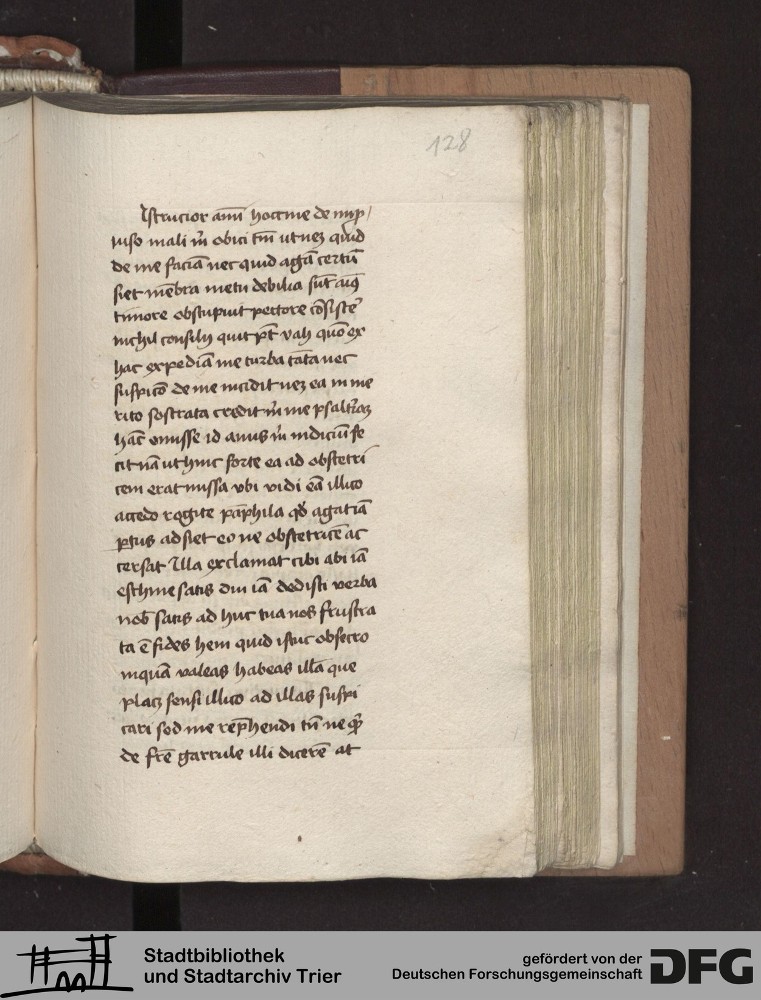 128
Istrucior anni hoccine de inp/
uiso mali m̄ obici tm̄ ut nez quid
de me faciā nec quid agā certū
siet mēbra metu debilia sūt aīꝯ
timore obstupuit pectore cōsiste͛
nichil consilij quit pt̄ vah quō ex
hac expediā me turba tāta nec
suspicō de me incidit nez ea in me
rito sostrata credit m̄ me psaltriaz
hāc emisse id anus m̄ indiciū fe
cit nā ut hinc forte ea ad obstetri
cem erat missa vbi vidi eā illico
accedo rogite pāphila qd agat iā
ptus adsiet eo ne obstetricē ac
cersat Illa exclamat tibi abi iā
eschine satis diu iā dedisti verba
nob̄ satis ad huc tua nos frustra
ta ē fides hem quid istuc obsecro
inquā valeas habeas illā que
placz sensi illico ad illas suspi
cari sed me rep̄hendi tn̄ ne qͥ
de frē garrule illi dicerē at
Stadtbibliothek
und Stadtarchiv Trier
gefördert von der
Deutschen Forschungsgemeinschaft
DFG